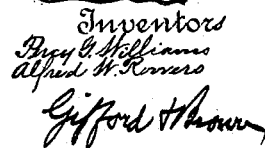 Inventors
Percy G. Williams
Alfred W. Romero
Gifford & Brown